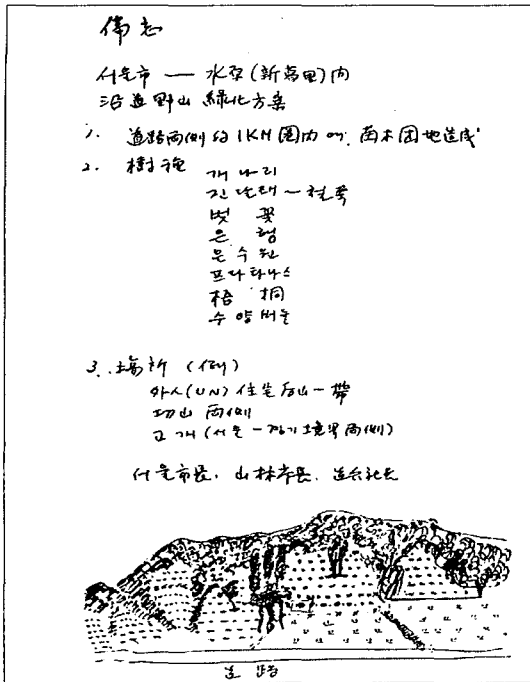 備忘
서울市 — 水原(新葛里)間
沿道野山 綠化方案
1. 道路兩側 約 1KM 圈內에 苗木団地造成
2. 樹種
개나리
진달래 ~ 철쭉
벚꽃
은행
은수원
프라타나스
梧桐
수양버들
3. 場所 (例)
外人(UN)住宅后山一帶
切山 両側
고개(서울-경기 境界 両側)
서울市長, 山林廳長, 道公社長
道路